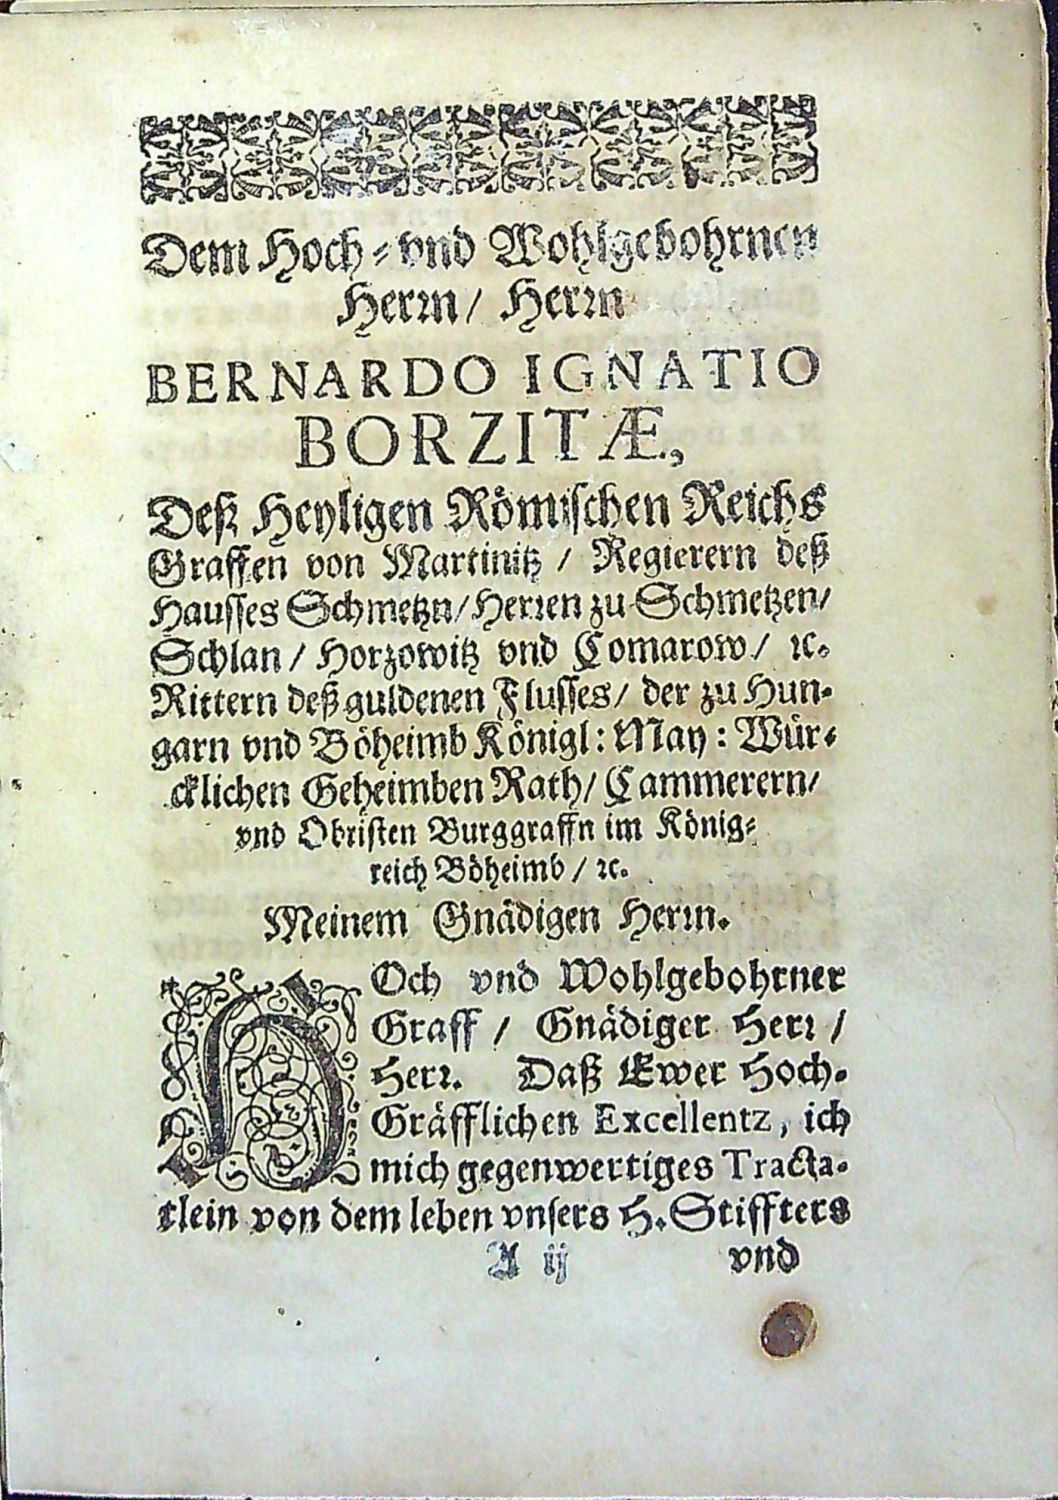 Dem Hoch- vnd Wohlgebohrnen
Herꝛn/ Herꝛn
BERNARDO IGNATIO
BORZITÆ,
Deß Heyligen Römischen Reichs
Graffen von Martinitz / Regierern deß
Hausses Schmetzn/Herꝛen zu Schmetzen/
Schlan/ Horzowitz vnd Comarow/ ꝛc.
Rittern deß guldenen Flusses/ der zu Hun-
garn vnd Böheimb Königl: May: Wür-
cklichen Geheimben Rath/ Cammerern/
vnd Obristen Burggraffn im König-
reich Böheimb/ ꝛc.
Meinem Gnädigen Herꝛn.
HOch vnd Wohlgebohrner
Graff / Gnädiger Herꝛ /
Herꝛ. Daß Ewer Hoch-
Gräfflichen Excellentz, ich
mich gegenwertiges Tracta-
tlein von dem leben vnsers H. Stiffters
A ij vnd